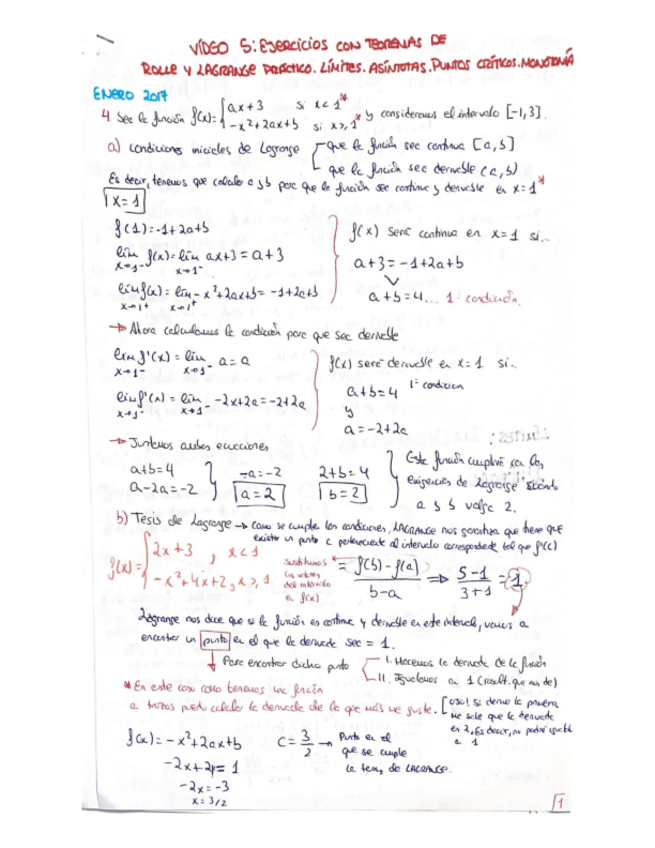 VÍDEO 5: EJERCICIOS CON TEOREMAS DE
ROLLE Y LAGRANGE PRÁCTICO. LÍMITES. ASÍNTOTAS. PUNTOS CRÍTICOS. MONOTONÍA
ENERO 2017
4 Sea la función f(x)= { ax+3 si x<1*
-x²+2ax+b si x≥1* y consideremos el intervalo [-1,3].
a) condiciones iniciales de Lagrange que la función sea continua [a,b]
que la función sea derivable (a,b)
Es decir, tenemos que calcular a y b para que la función sea continua y derivable en x=1*
x=1
f(1)=-1+2a+b
lím f(x)=lím ax+3=a+3
x→1⁻ x→1⁻
lím f(x)=lím -x²+2ax+b=-1+2a+b
x→1⁺ x→1⁺
f(x) será continua en x=1 si..
a+3=-1+2a+b
a+b=4... 1ª condición.
→ Ahora calculamos la condición para que sea derivable
lím f'(x)=lím a=a
x→1⁻ x→1⁻
lím f'(x)=lím -2x+2a=-2+2a
x→1⁻ x→1⁻
f(x) será derivable en x=1 si..
a+b=4 1ª condicion
y
a=-2+2a
→ Juntamos ambas ecuaciones
a+b=4
a-2a=-2
-a=-2
a=2
2+b=4
b=2
Esta función cumplirá
exigencias de Lagrange cuando
a y b valga 2.
b) Tesis de Lagrange → como se cumplen las condiciones, LAGRANGE nos garantiza que tiene que
existir un punto c perteneciente al intervalo correspondiente tal que f'(c)
f(x)= { 2x+3, x<1
-x²+4x+2, x≥1
sustituimos
los valores
del intervalo
en f(x)
* = f(b)-f(a) / b-a ⇒ 5-1 / 3+1 = 1
Lagrange nos dice que si la función es continua y derivable en este intervalo, vamos a
encontrar un punto en el que la derivada sea = 1.
Para encontrar dicho punto
I. Hacemos la derivada de la función
II. Igualamos a 1 (result. que nos de)
* En este caso como tenemos una función
a trozos puedo calcular la derivada de la que más me guste. [ojo! Si derivo la primera
me sale que la derivada
es 2. Es decir, no podré igualarla
a 1
f(x)=-x²+2ax+b
-2x+4=1
-2x=-3
x=3/2
c=3/2 → Punto en el
que se cumple
la teor, de LAGRANGE.
1